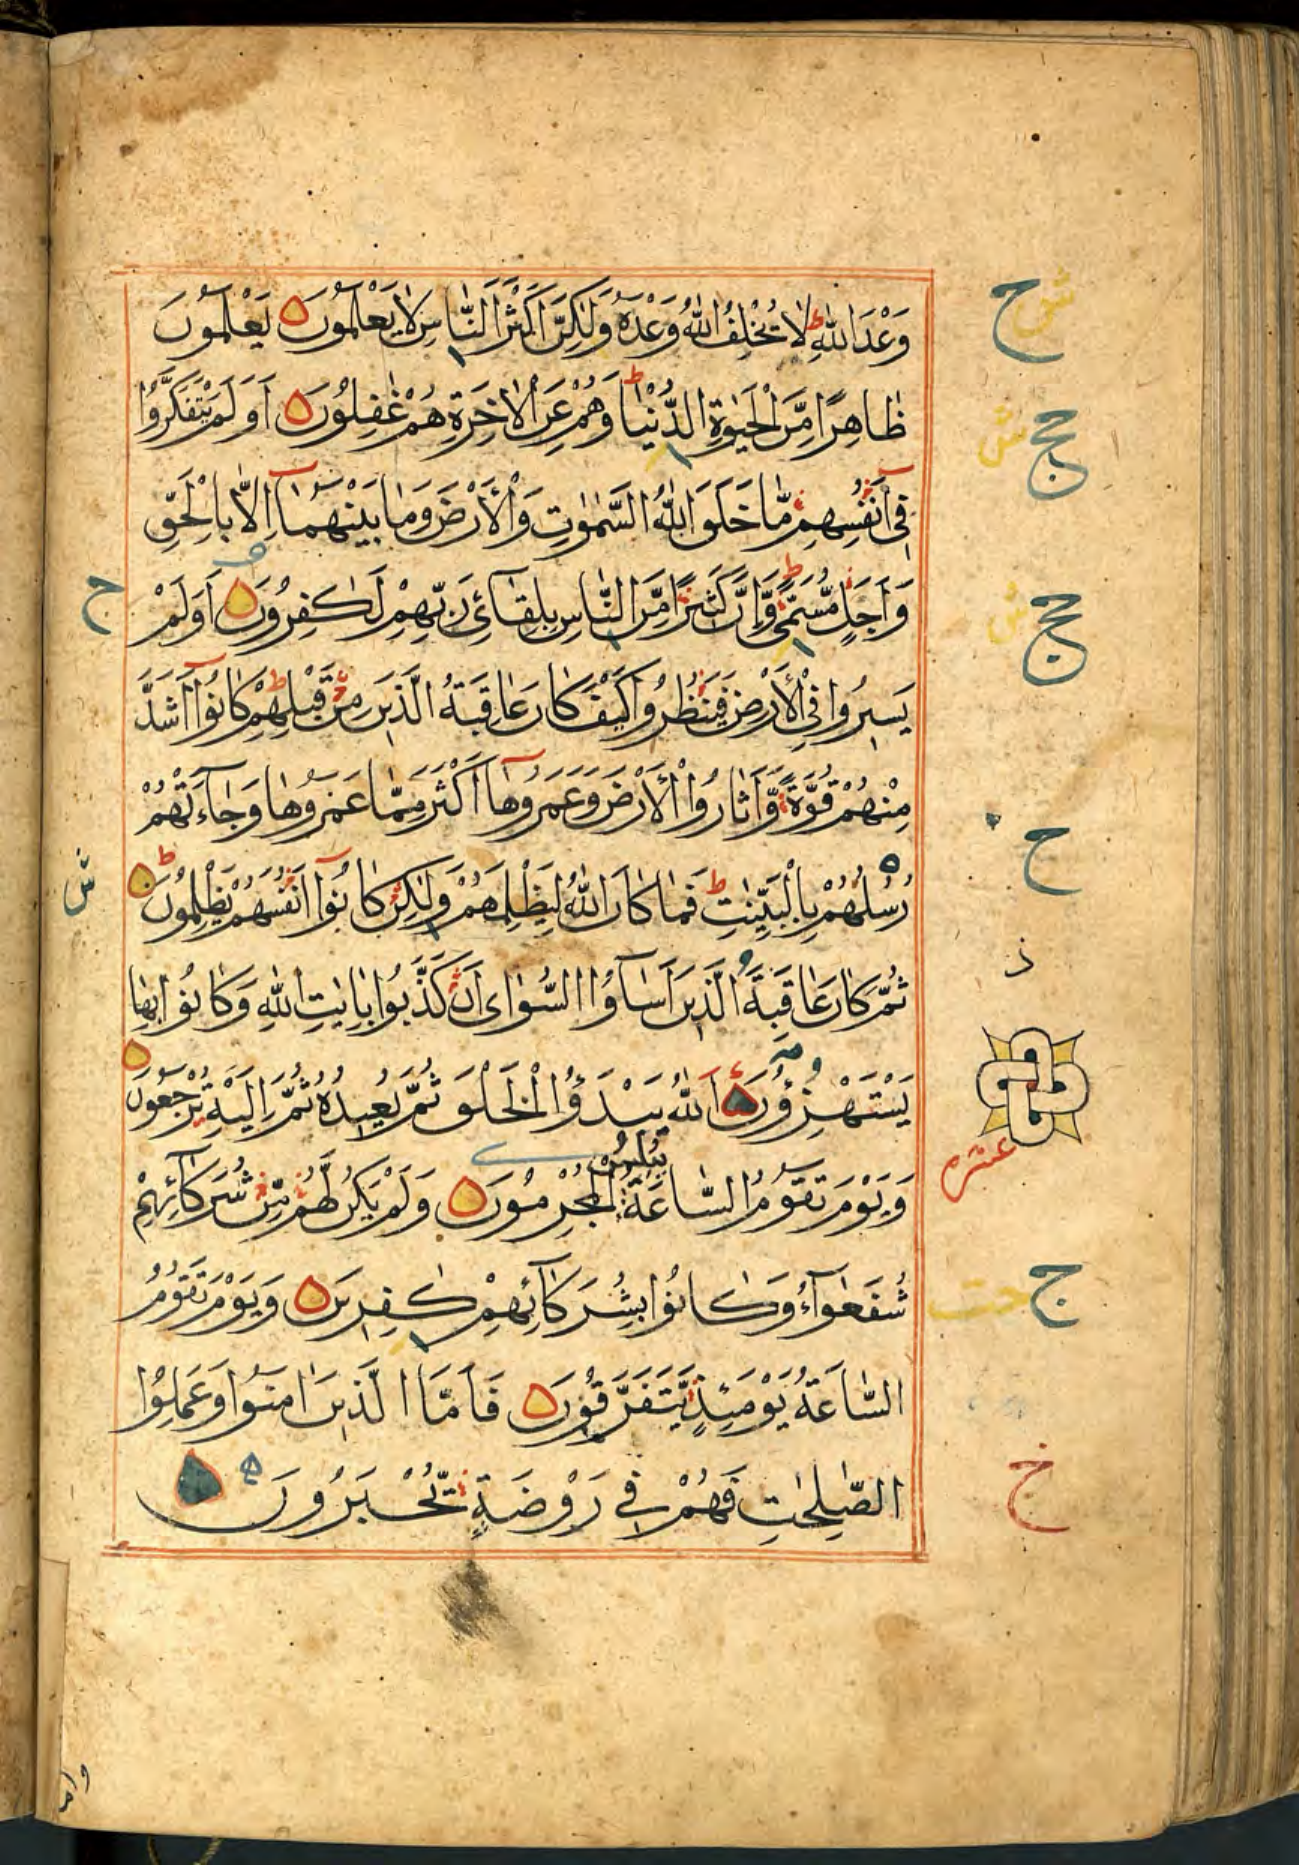 وَعْدَ اللّٰهِ لَا يُخْلِفُ اللّٰهُ وَعْدَهُ وَلٰكِنَّ اَكْثَرَ النَّاسِ لَا يَعْلَمُونَ يَعْلَمُونَ
ظَاهِرًا مِّنَ الْحَيٰوةِ الدُّنْيَا وَهُمْ عَنِ الْاٰخِرَةِ هُمْ غٰفِلُونَ اَوَلَمْ يَتَفَكَّرُوْا
فِىٓ اَنْفُسِهِمْ مَّا خَلَقَ اللّٰهُ السَّمٰوٰتِ وَالْاَرْضَ وَمَا بَيْنَهُمَآ اِلَّا بِالْحَقِّ
وَاَجَلٍ مُّسَمًّى وَّاِنَّ كَثِيْرًا مِّنَ النَّاسِ بِلِقَآئِ رَبِّهِمْ لَكٰفِرُونَ اَوَلَمْ
يَسِيرُوا فِى الْاَرْضِ فَيَنْظُرُوا كَيْفَ كَانَ عَاقِبَةُ الَّذِينَ مِنْ قَبْلِهِمْ كَانُوٓا اَشَدَّ
مِنْهُمْ قُوَّةً وَّاَثَارُوا الْاَرْضَ وَعَمَرُوهَآ اَكْثَرَ مِمَّا عَمَرُوهَا وَجَآءَتْهُمْ
رُسُلُهُمْ بِالْبَيِّنٰتِ فَمَا كَانَ اللّٰهُ لِيَظْلِمَهُمْ وَلٰكِنْ كَانُوٓا اَنْفُسَهُمْ يَظْلِمُونَ
ثُمَّ كَانَ عَاقِبَةَ الَّذِينَ اَسَآؤُا السُّوٓاٰى اَنْ كَذَّبُوا بِاٰيٰتِ اللّٰهِ وَكَانُوا بِهَا
يَسْتَهْزِؤُنَ اَللّٰهُ يَبْدَؤُا الْخَلْقَ ثُمَّ يُعِيدُهُ ثُمَّ اِلَيْهِ تُرْجَعُونَ
وَيَوْمَ تَقُومُ السَّاعَةُ يُبْلِسُ الْمُجْرِمُونَ وَلَمْ يَكُنْ لَّهُمْ مِّنْ شُرَكَآئِهِمْ
شُفَعٰٓؤُا وَكَانُوا بِشُرَكَآئِهِمْ كٰفِرِينَ وَيَوْمَ تَقُومُ
السَّاعَةُ يَوْمَئِذٍ يَّتَفَرَّقُونَ فَاَمَّا الَّذِينَ اٰمَنُوا وَعَمِلُوا
الصّٰلِحٰتِ فَهُمْ فِى رَوْضَةٍ يُّحْبَرُونَ
عشره